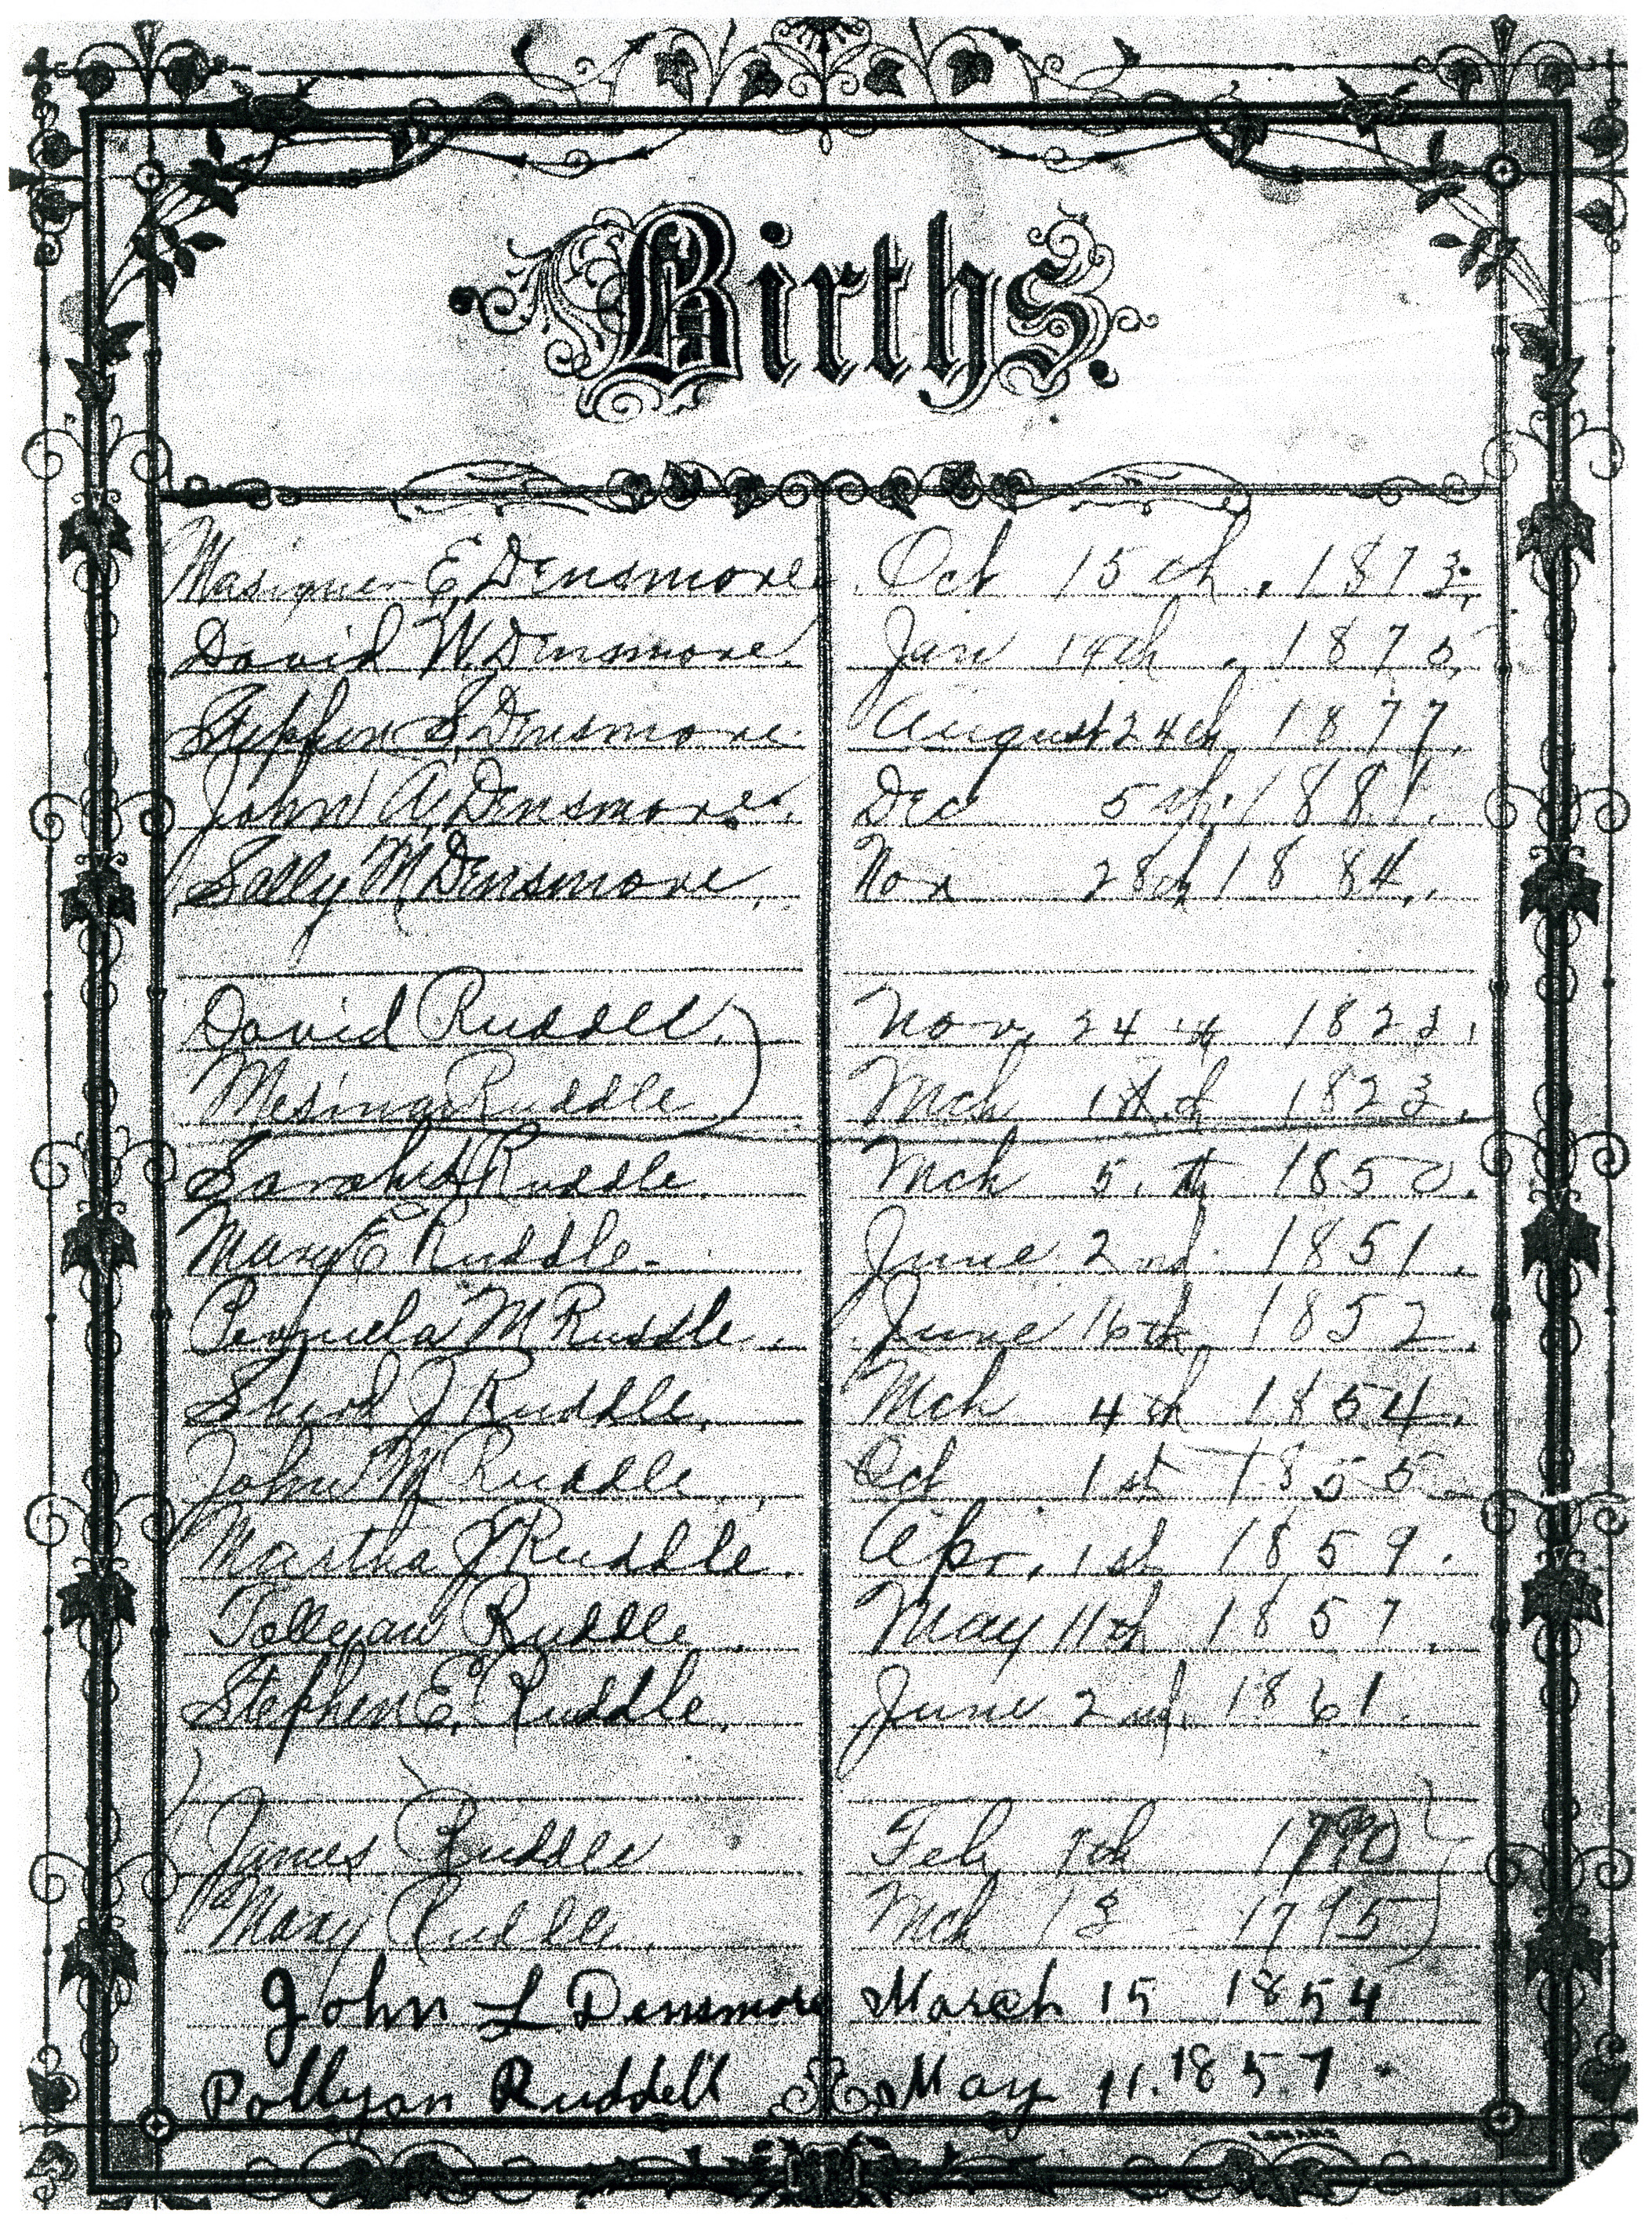 Births.
Masiner E. Densmore. Oct 15th, 1873,
David W. Densmore. Jan 14th, 1875,
Stephen S. Densmore. August 24th, 1877,
John A. Densmore. Dec 5th, 1881.
Sally M Densmore, Nov 28th 1884,.
David Ruddle. Nov, 24th 1823,
Mesina Ruddle Mch th 1823.
Sarah Ruddle Mch 5.th 1850.
Mary E Ruddle. June 2nd. 1851.
Permela M Ruddle. June 16th 1852.
J Ruddle. Mch 4th 1854.
John M Ruddle, Oct 1st 1855.
Martha J Ruddle. Apr. 1st 1859.
Pollyan Ruddle May 11th 1857.
Stephen E. Ruddle. June 2nd. 1861.
James Ruddle Feb, 7th 1790
Mary Ruddle. Mch 13 - 1795
John L Densmore March 15 1854
Pollyan Ruddell May 11. 1857.